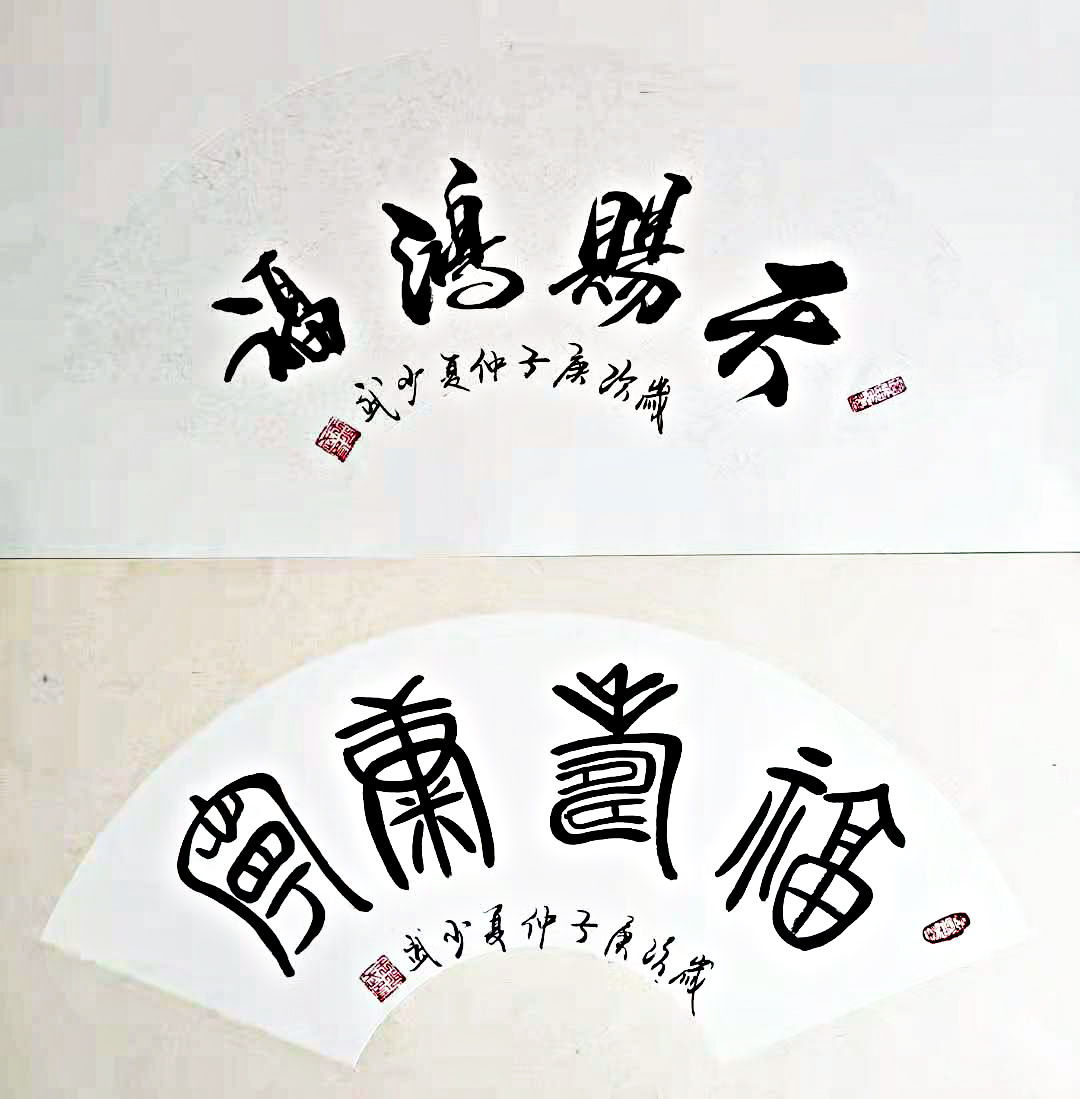 天赐鸿福
歲次庚子仲夏少武
福壽康寧
歲次庚子仲夏少武